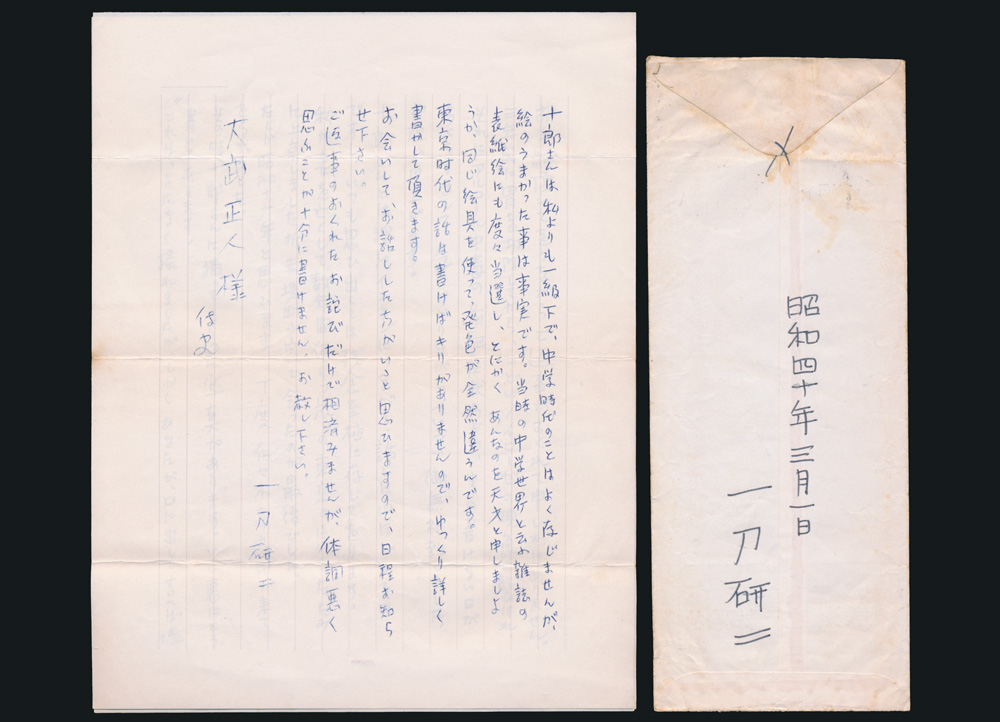 十郎さんは私よりも一級下で、中学時代のことはよく存じませんが、
絵のうまかった事は事実です。当時の中学世界と云ふ雑誌の
表紙絵にも度々当選し、とにかく あんなのを天才と申しましよ
うか、同じ絵具を使って、発色が全然違うんです。
東京時代の話は書けばキリがありませんので、ゆっくり詳しく
書かして頂きます。
お会いしてお話しした方がいゝと思ひますので、日程お知ら
せ下さい。
ご返事のおくれたお詫びだけで相済みませんが、体調悪く
思ふことが十分に書けません、お赦し下さい。
一刀研二
大武正人様
侍史
〆
昭和四十年三月一日
一刀研二